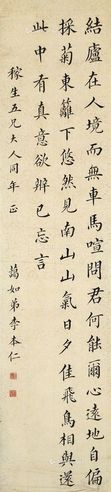 結廬在人境而無車馬喧問君何能爾心遠地自偏
採菊東籬下悠然見南山山氣日夕佳飛鳥相與還
此中有真意欲辨已忘言
稼生五兄大人同年正
藹如弟李本仁